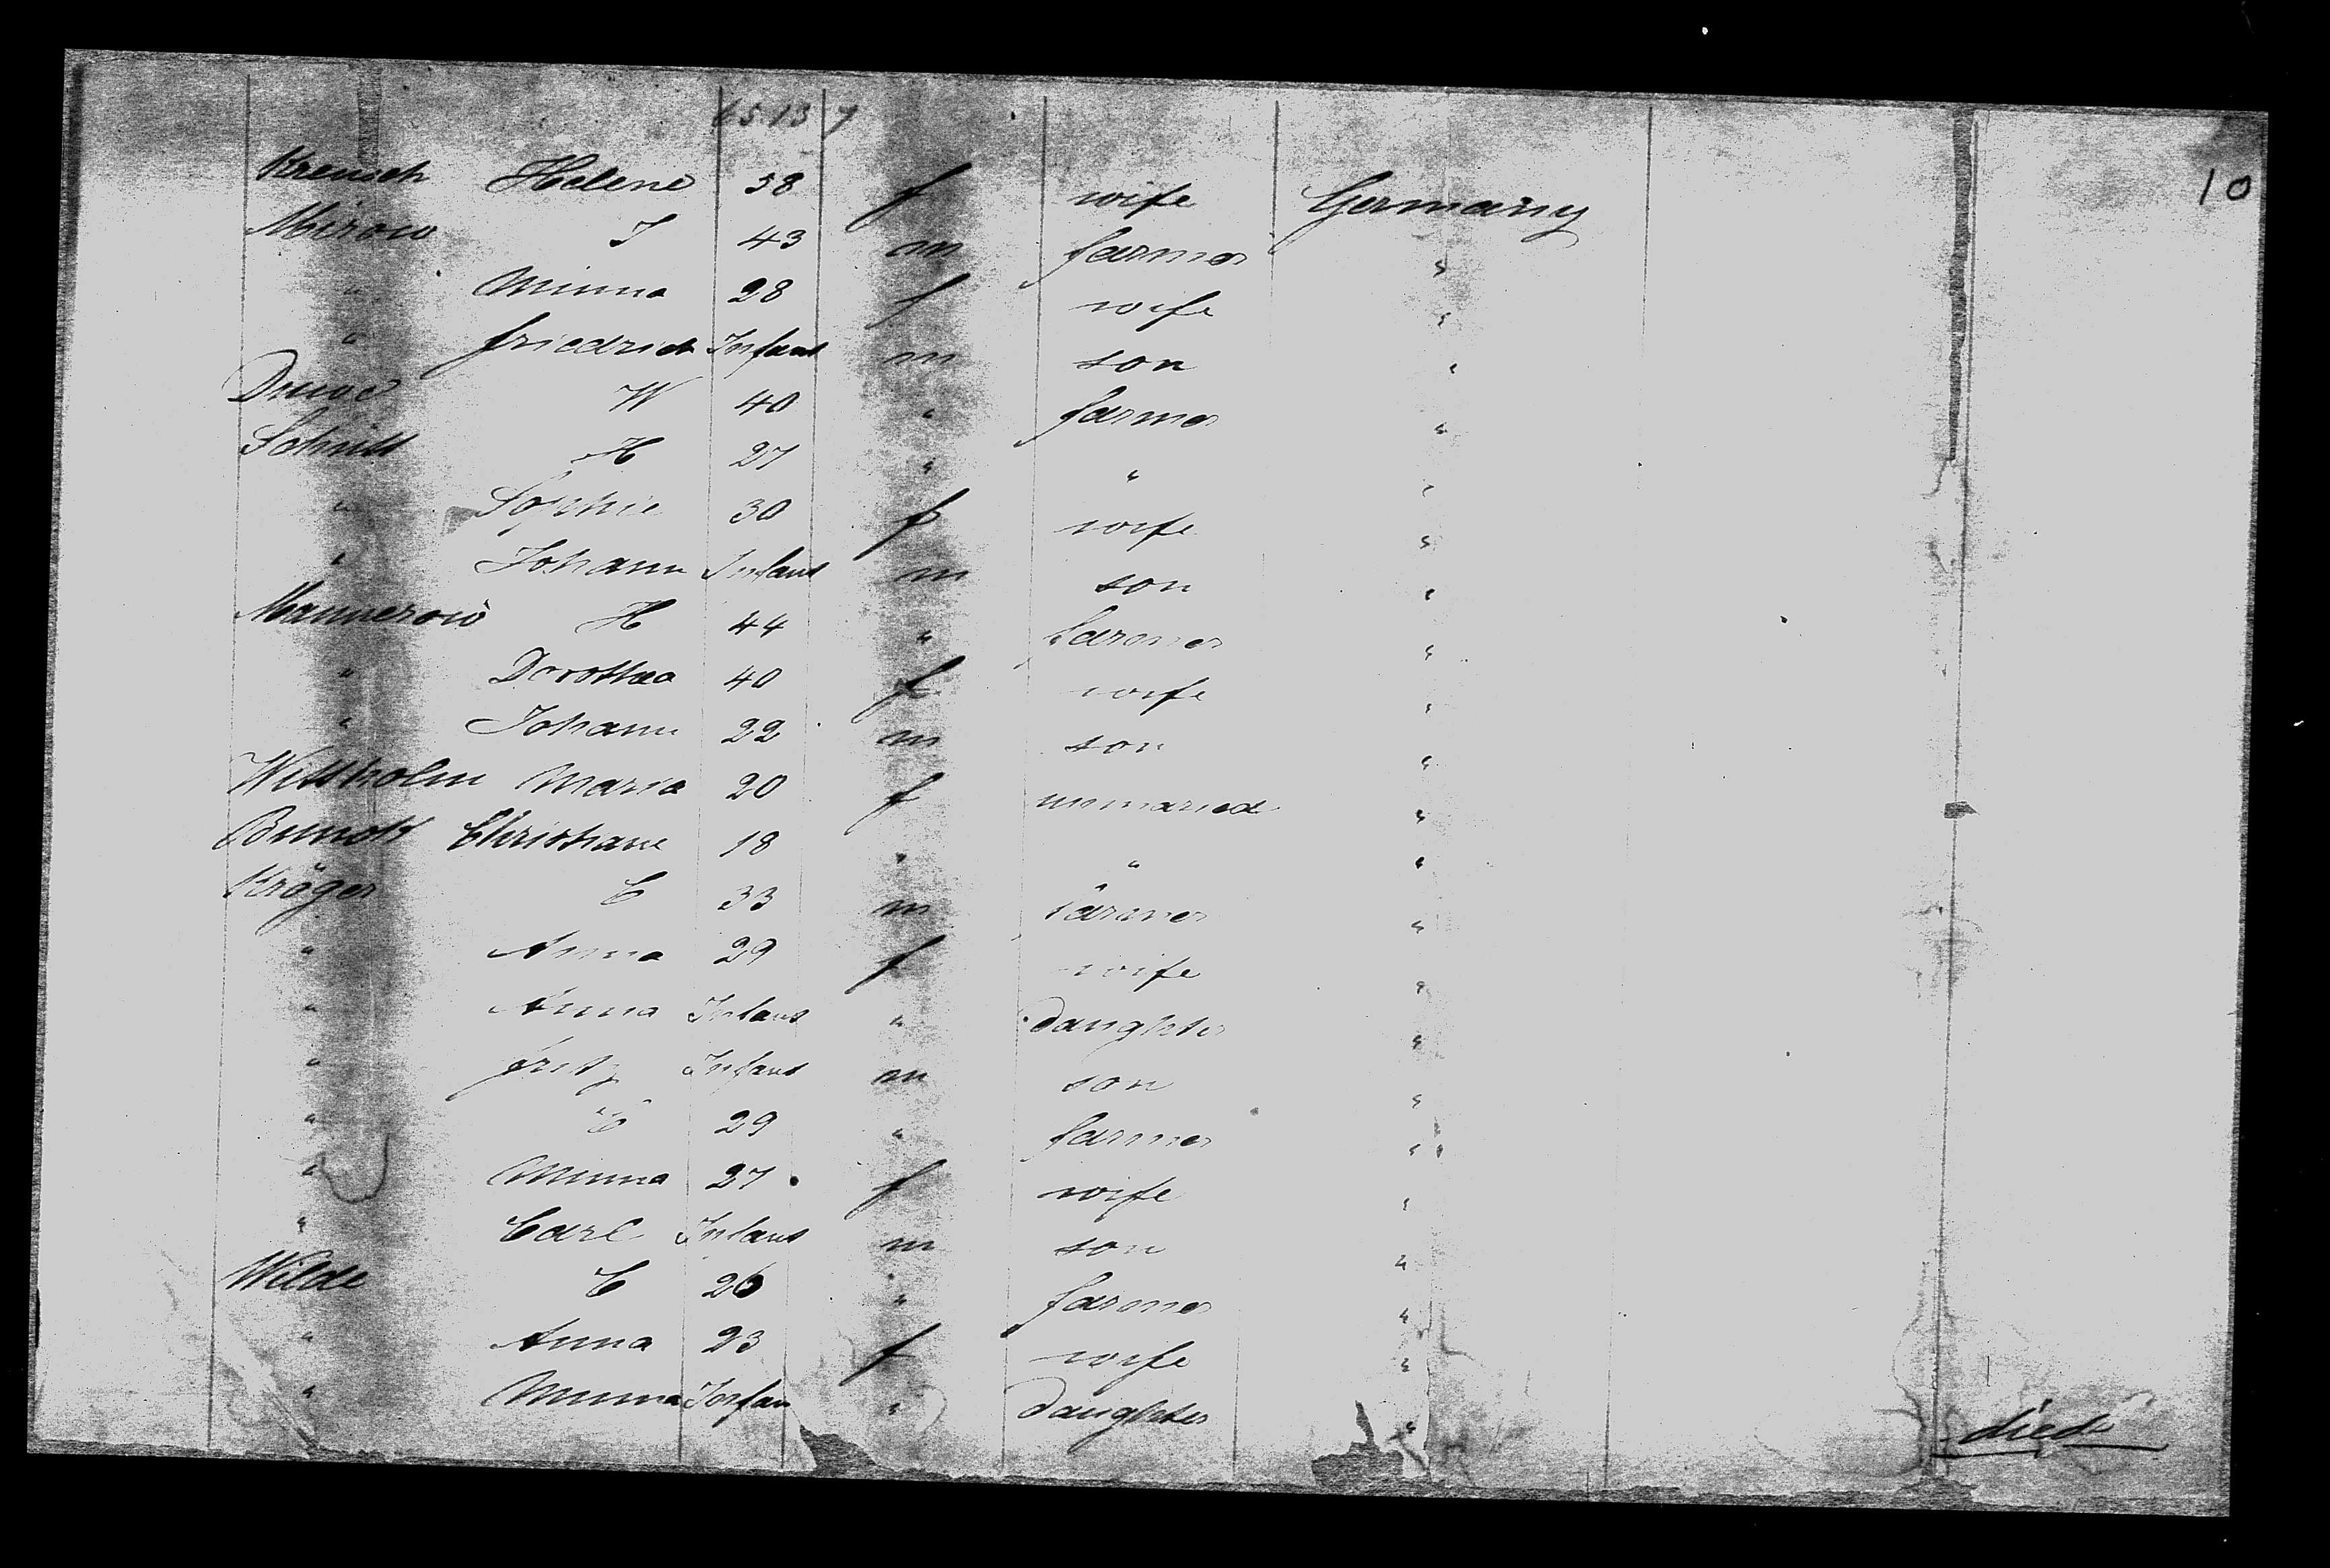 65 13 7
10
Krensch Helene 58 f wife Germany
Mirow J 43 m farmer "
" Minna 28 f wife "
" friedrich Infant m son "
Duwe W 40 " farmer "
Schult H 27 " " "
" Sophie 30 f wife "
" Johann Infant m son "
Mannerow H 44 " farmer "
" Dorothea 40 f wife "
" Johann 22 m son "
Wittholm Maria 20 f unmaried "
Christiane 18 " " "
Kröger C 33 m farmer "
" Anna 29 f wife "
" Anna Infant " daughter "
" fritz Infant m son "
" C 29 " farmer "
" Minna 27 f wife "
" Carl Infant m son "
Wilde C 26 " farmer "
" Anna 23 f wife "
" Minna Infan " daughter " died